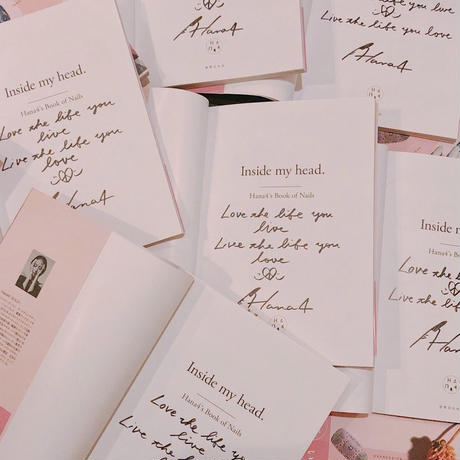 Hana4
Live the life you
love
Hana4
Inside my head.
Hana4's Book of Nails
Love the life you
live
Live the life you
love
Hana4
Inside my head.
Hana4's Book of Nails
Love the life you
live
Live the life you
love
Hana4
HA
Inside my
Hana4's Book o
Love the li
Live the li
Hana4
Inside my head.
Hana4's Book of Nails
Love the life you
live
Live the life you